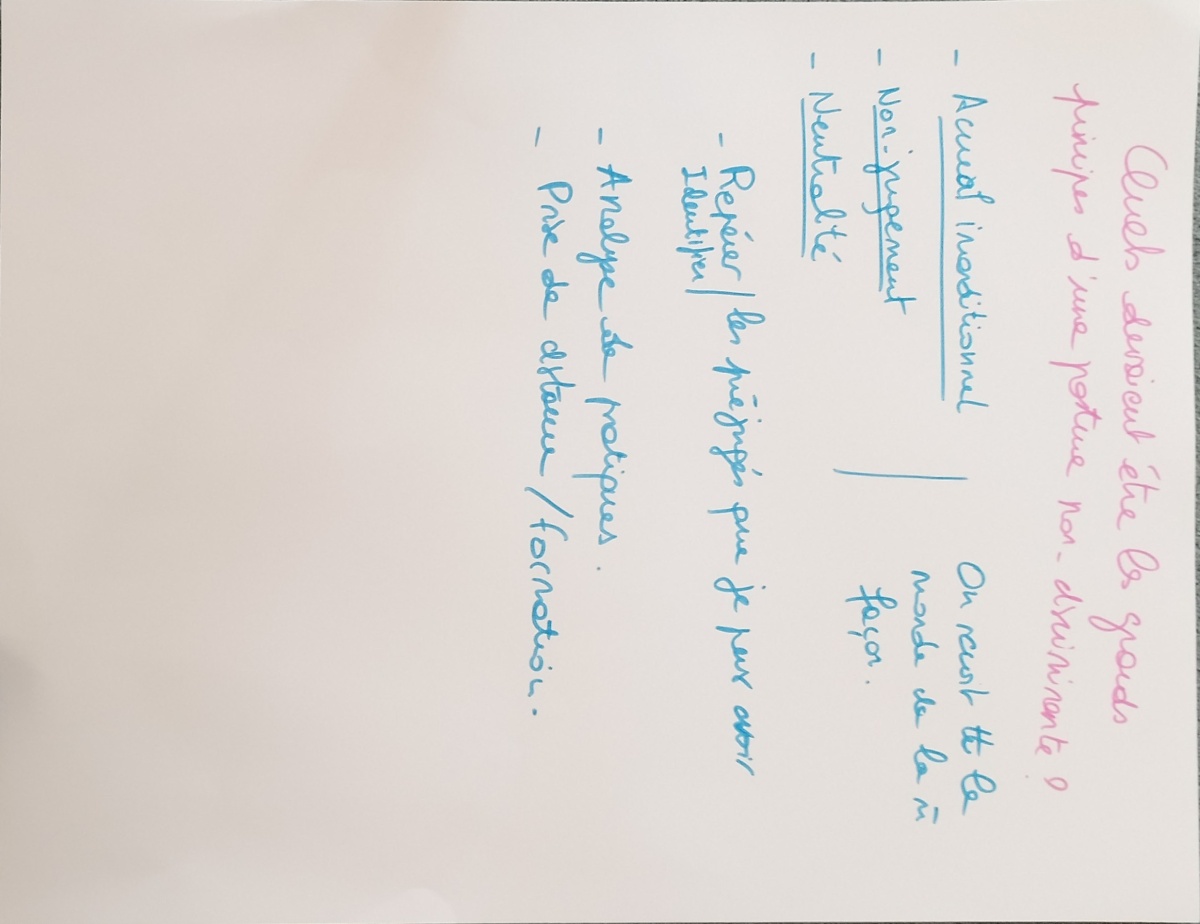 Quels devraient être les grands
principes d'une posture non-discriminante ?
- Accueil inconditionnel
- Non-jugement
- Neutralité
On reçoit tt le
monde de la m̄
façon.
- Repérer / les préjugés que je peux avoir
Identifier
- Analyse de pratiques.
- Prise de distance / formation.